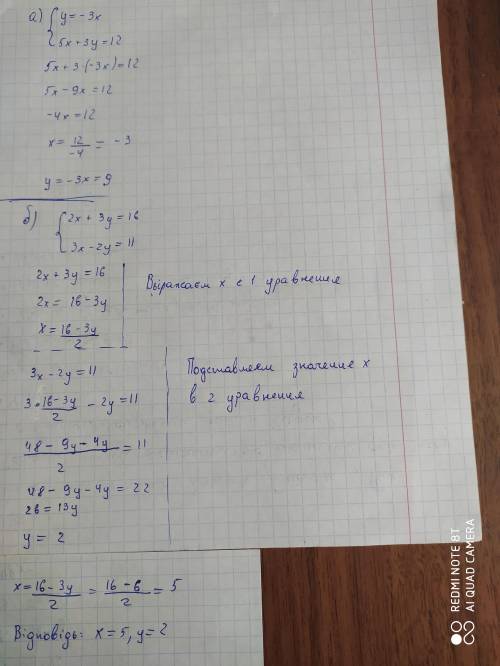 а) { y = -3x
5x + 3y = 12
5x + 3·(-3x) = 12
5x - 9x = 12
-4x = 12
x = 12/-4 = -3
y = -3x = 9
б) { 2x + 3y = 16
3x - 2y = 11
2x + 3y = 16
2x = 16 - 3y
x = 16 - 3y / 2
Выражаем x с 1 уравнения
3x - 2y = 11
3 · 16 - 3y / 2 - 2y = 11
48 - 9y - 4y / 2 = 11
48 - 9y - 4y = 22
26 = 13y
y = 2
Подставляем значение x
в 2 уравнения
x = 16 - 3y / 2 = 16 - 6 / 2 = 5
Відповідь: x = 5, y = 2
REDMI NOTE 8T
AI QUAD CAMERA